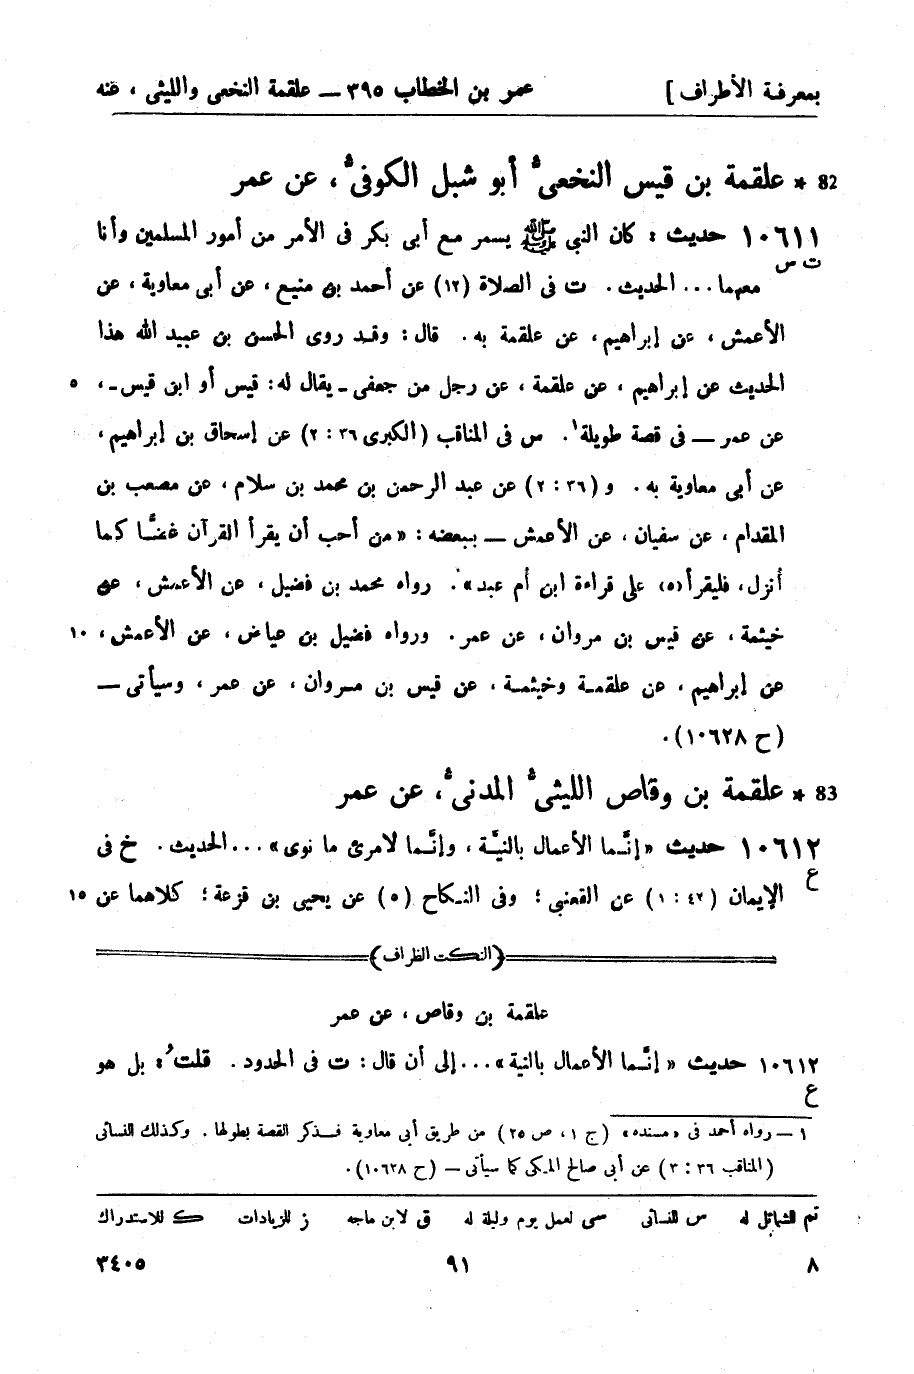 بمعرفة الأطراف ] عمر بن الخطاب ٣٩٥ — علقمة النخعى والليثى ، عنه
82 * علقمة بن قيس النخعى أبو شبل الكوفى ، عن عمر
١٠٦١١ حديث : كان النبي ﷺ يسمر مع أبى بكر فى الأمر من أمور المسلمين وأنا
ت س
معهما ... الحديث . ت فى الصلاة (١٢) عن أحمد بن منيع ، عن أبى معاوية ، عن
الأعمش ، عن إبراهيم ، عن علقمة به . قال : وقد روى الحسن بن عبيد الله هذا
الحديث عن إبراهيم ، عن علقمة ، عن رجل من جعفى ـ يقال له : قيس أو ابن قيس ـ ، ٥
عن عمر — فى قصة طويلة١ . س فى المناقب (الكبرى ٣٦ : ٢) عن إسحاق بن إبراهيم ،
عن أبى معاوية به . و (٣٦ : ٢) عن عبد الرحمن بن محمد بن سلام ، عن مصعب بن
المقدام ، عن سفيان ، عن الأعمش — ببعضه : «من أحب أن يقرأ القرآن غضًّا كما
أنزل ، فليقرأ (٥) على قراءة ابن أم عبد» . رواه محمد بن فضيل ، عن الأعمش ، عن
خيثمة ، عن قيس بن مروان ، عن عمر . ورواه فضيل بن عياض ، عن الأعمش ، ١٠
عن إبراهيم ، عن علقمة وخيثمة ، عن قيس بن مروان ، عن عمر ، وسيأتى —
(ح ١٠٦٢٨) .
83 * علقمة بن وقاص الليثى المدنى ، عن عمر
١٠٦١٢ حديث «إنَّما الأعمال بالنيَّة ، وإنَّما لامرئ ما نوى» ... الحديث . خ فى
ع
الإيمان (٤٢ : ١) عن القعنبى ؛ وفى النكاح (٥) عن يحيى بن قزعة ؛ كلاهما عن ١٥
(النكت الظراف)
علقمة بن وقاص ، عن عمر
١٠٦١٢ حديث «إنَّما الأعمال بالنية» ... إلى أن قال : ت فى الحدود . قلتُ : بل هو
ع
١ — رواه أحمد فى «مسنده» (ج ١ ، ص ٢٥) من طريق أبى معاوية فذكر القصة بطولها . وكذلك النسائى
(المناقب ٣٦ : ٣) عن أبى صالح المكى كما سيأتى — (ح ١٠٦٢٨) .
تم الشمائل له س للنسائى سى لعمل يوم وليلة له ق لابن ماجه ز للزيادات ك للاستدراك
٨ ٩١ ٣٤٠٥